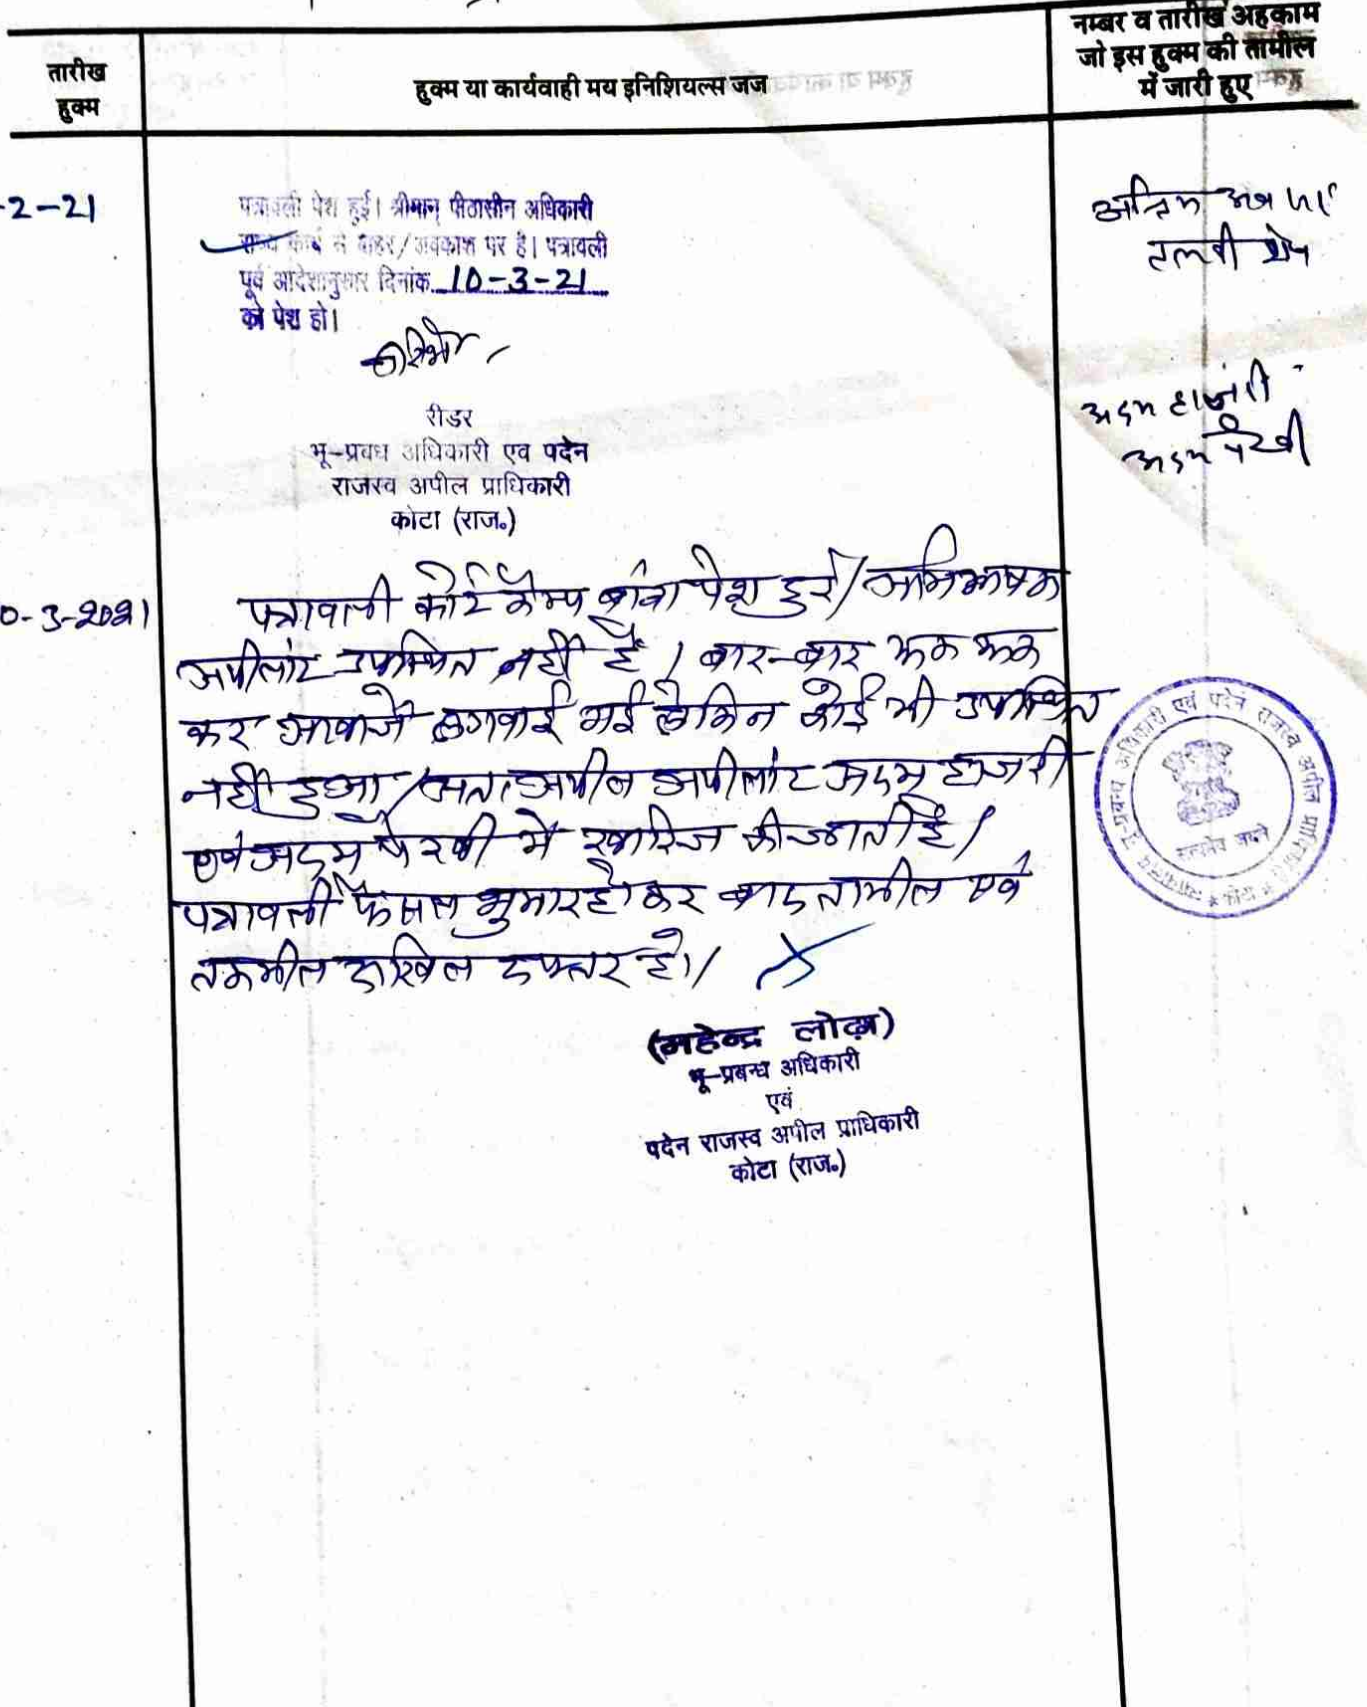 तारीख
हुक्म
हुक्म या कार्यवाही मय इनिशियल्स जज
नम्बर व तारीख अहकाम
जो इस हुक्म की तामील
में जारी हुए
-2-21
पत्रावली पेश हुई। श्रीमान् पीठासीन अधिकारी
राज्य कार्य से बाहर/अवकाश पर है। पत्रावली
पूर्व आदेशानुसार दिनांक 10-3-21
को पेश हो।
रीडर
भू-प्रबंध अधिकारी एवं पदेन
राजस्व अपील प्राधिकारी
कोटा (राज०)
तलबी शेष
अदम हाजरी
अदम पैरवी
0-3-2021
पत्रावली कोर्ट कैम्प पेश हुई। अभिभाषक
अपीलांट उपस्थित नहीं है। बार-बार
कर आवाजें लगवाई गई लेकिन कोई भी उपस्थित
नहीं हुआ। अतः अपील अपीलांट अदम हाजरी
एवं अदम पैरवी में खारिज की जाती है।
पत्रावली फैसल शुमार होकर बाद तामील एवं
तकमील दाखिल दफ्तर हो।
(महेन्द्र लोढ़ा)
भू-प्रबन्ध अधिकारी
एवं
पदेन राजस्व अपील प्राधिकारी
कोटा (राज०)
भू-प्रबन्ध अधिकारी एवं पदेन राजस्व अपील
सत्यमेव जयते